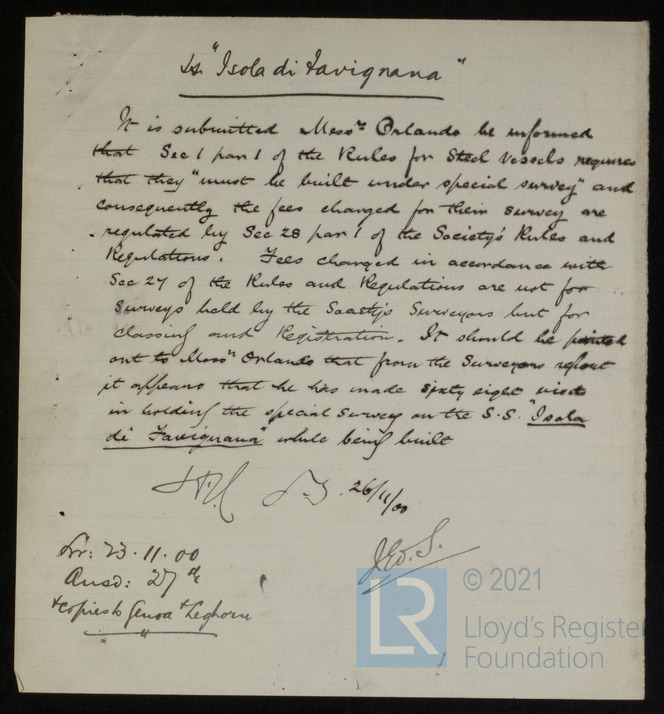 SS "Isola di Favignana"
It is submitted Messrs Orlando be informed
that Sec 1 par 1 of the Rules for Steel Vessels requires
that they "must be built under special survey" and
consequently the fees charged for their survey are
regulated by Sec 28 par 1 of the Society's Rules and
Regulations. Fees charged in accordance with
Sec 27 of the Rules and Regulations are not for
surveys held by the Society's Surveyors but for
classing and Registration. It should be pointed
out to Messrs Orlando that from the Surveyors report
it appears that he has made sixty eight visits
in holding the special survey on the S.S. "Isola
di Favignana" while being built
26/11/00
Lr: 23.11.00
Ansd: 27th
+ copies to Genoa + Leghorn
LR
© 2021
Lloyd's Register
Foundation